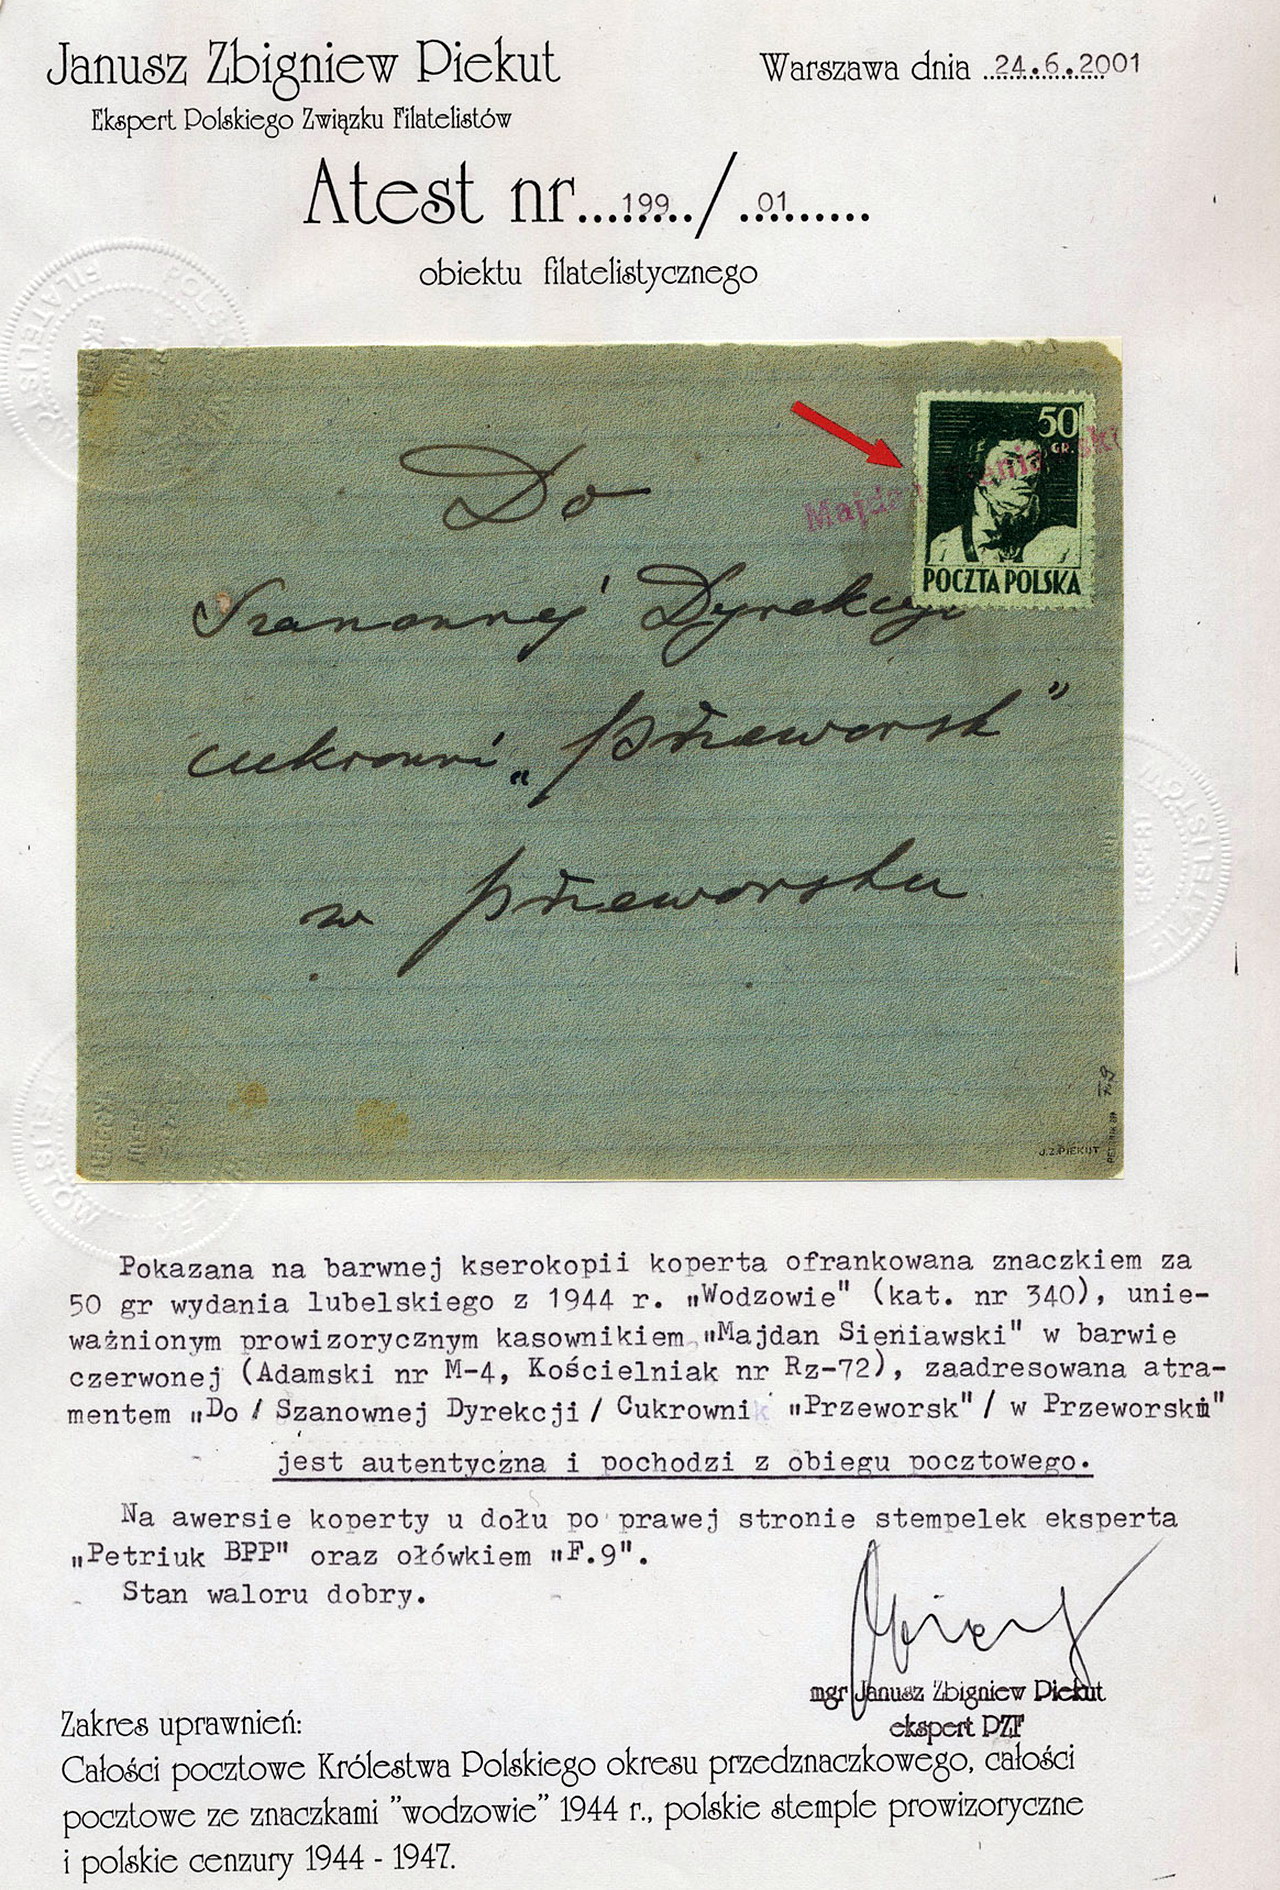 Janusz Zbigniew Piekut
Warszawa dnia 24.6.2001
Ekspert Polskiego Związku Filatelistów
Atest nr...199../..01......
obiektu filatelistycznego
Do
50
GR.
Majdan Sieniawski
POCZTA POLSKA
Szanownej Dyrekcyi
cukrowni „Przeworsk"
w Przeworsku
F.9
J.Z.PIEKUT
Pokazana na barwnej kserokopii koperta ofrankowana znaczkiem za
50 gr wydania lubelskiego z 1944 r. „Wodzowie" (kat. nr 340), unie-
ważnionym prowizorycznym kasownikiem „Majdan Sieniawski" w barwie
czerwonej (Adamski nr M-4, Kościelniak nr Rz-72), zaadresowana atra-
mentem „Do / Szanownej Dyrekcji / Cukrowni "Przeworsk" / w Przeworsku"
jest autentyczna i pochodzi z obiegu pocztowego.
Na awersie koperty u dołu po prawej stronie stempelek eksperta
„Petriuk BPP" oraz ołówkiem „F.9".
Stan waloru dobry.
mgr Janusz Zbigniew Piekut
ekspert PZF
Zakres uprawnień:
Całości pocztowe Królestwa Polskiego okresu przedznaczkowego, całości
pocztowe ze znaczkami "wodzowie" 1944 r., polskie stemple prowizoryczne
i polskie cenzury 1944 - 1947.